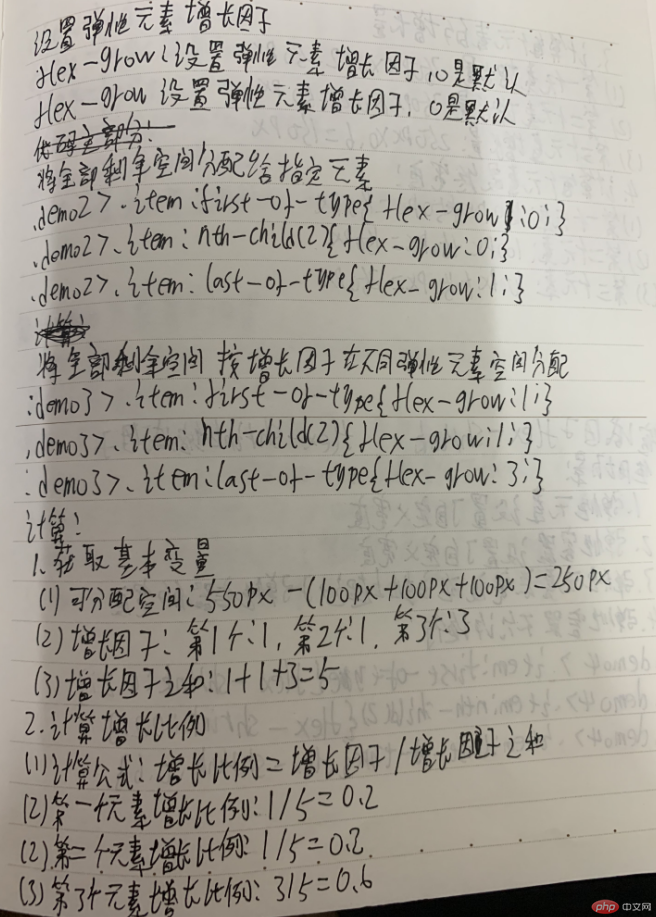 设置弹性元素增长因子
flex-grow:设置弹性元素增长因子,0是默认
flex-grow 设置弹性元素增长因子,0是默认
将全部剩余空间分配给指定元素
.demo2>.item:first-of-type{flex-grow:0;}
.demo2>.item:nth-child(2){flex-grow:0;}
.demo2>.item:last-of-type{flex-grow:1;}
将全部剩余空间按增长因子在不同弹性元素空间分配
.demo3>.item:first-of-type{flex-grow:1;}
.demo3>.item:nth-child(2){flex-grow:1;}
.demo3>.item:last-of-type{flex-grow:3;}
计算:
1.获取基本变量
(1)可分配空间:550px-(100px+100px+100px)=250px
(2)增长因子:第1个:1,第2个:1,第3个:3
(3)增长因子之和:1+1+3=5
2.计算增长比例
(1)计算公式:增长比例=增长因子/增长因子之和
(2)第一个元素增长比例:1/5=0.2
(2)第二个元素增长比例:1/5=0.2
(3)第3个元素增长比例:3/5=0.6
php 中文网